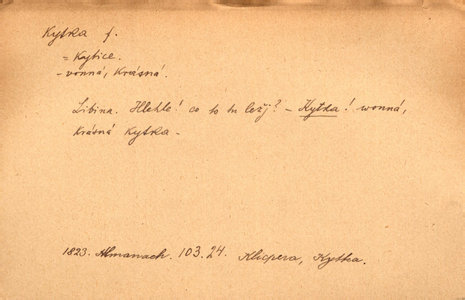 Kytka f.
= Kytice.
- vonná, krásná.
Libina. Hlehle! co to tu ležj? – Kytka! wonná,
krásná kytka –
1823. Almanach. 103.24. Klicpera, Kytka.